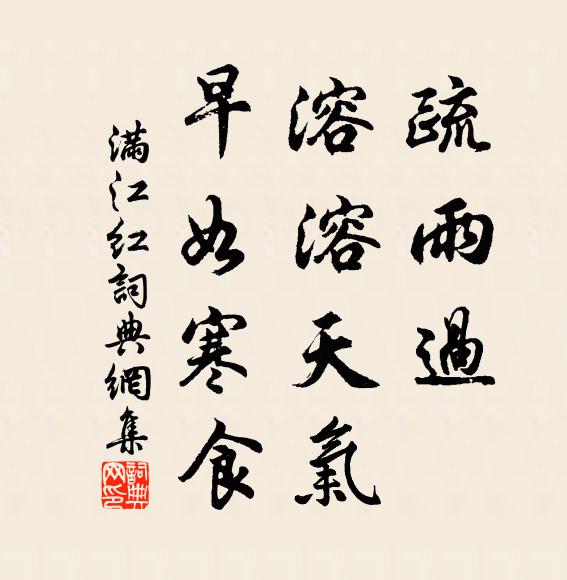 疏雨過
溶溶天氣
早如寒食
滿江紅詞典網集
詞典
网印